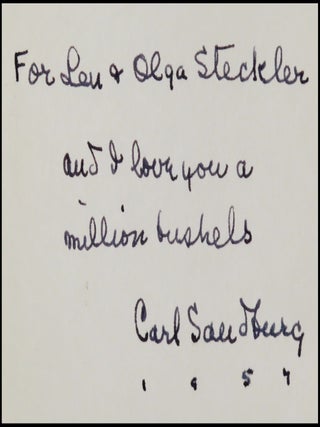 For Len & Olga Steckler
and I love you a
million bushels
Carl Sandburg
1 9 5 7